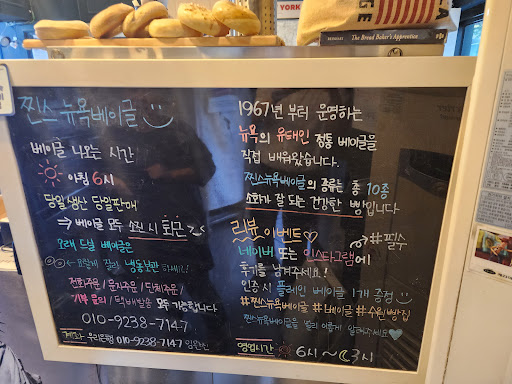 YORK
The Bread Baker's Apprentice
찐스 뉴욕베이글
베이글 나오는 시간
아침 6시
당일생산 당일판매
⇒ 베이글 모두 소진 시 퇴근
오래 드실 베이글은
요렇게 잘라 냉동보관 하세요!
전화주문 / 문자주문 / 단체주문 /
기부 문의 / 택배발송 모두 가능합니다
010-9238-7147
계좌 우리은행 010-9238-7147
1967년 부터 운영하는
뉴욕의 유태인 정통 베이글을
직접 배워왔습니다.
찐스뉴욕베이글의 종류는 총 10종
소화가 잘 되는 건강한 빵입니다
리뷰 이벤트♡
#필수
네이버 또는 인스타그램에
후기를 남겨주세요!
인증 시 플레인 베이글 1개 증정
#찐스뉴욕베이글 #베이글 #수원빵집
찐스뉴욕베이글을 널리 이롭게 알려주세요
영업시간 6시~3시